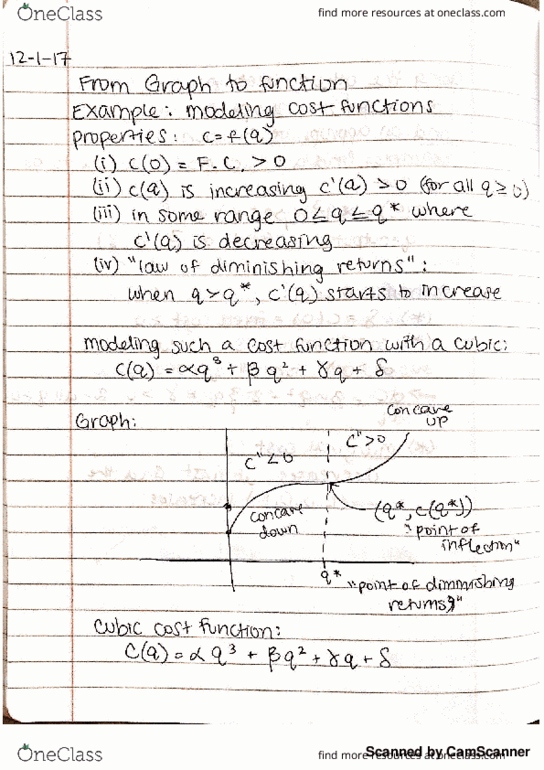 OneClass
find more resources at oneclass.com
12-1-17
From Graph to function
Example: modeling cost functions
properties: c=f(q)
(i) c(0) = F.C. > 0
(ii) c(q) is increasing c'(q) > 0 (for all q ≥ 0)
(iii) in some range 0 ≤ q ≤ q* where
c'(q) is decreasing
(iv) "law of diminishing returns":
when q > q*, c'(q) starts to increase
modeling such a cost function with a cubic:
C(q) = αq³ + βq² + γq + δ
Graph:
concave up
c" < 0
c" > 0
concave down
(q*, c(q*))
"point of inflection"
q*
"point of dimmishing returns"
cubic cost function:
C(q) = αq³ + βq² + γq + δ
OneClass
find more resources at oneclass.com
Scanned by CamScanner